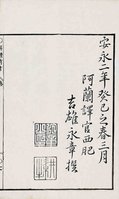 安永二年癸巳之春三月
阿蘭譯官西肥
吉雄永章撰